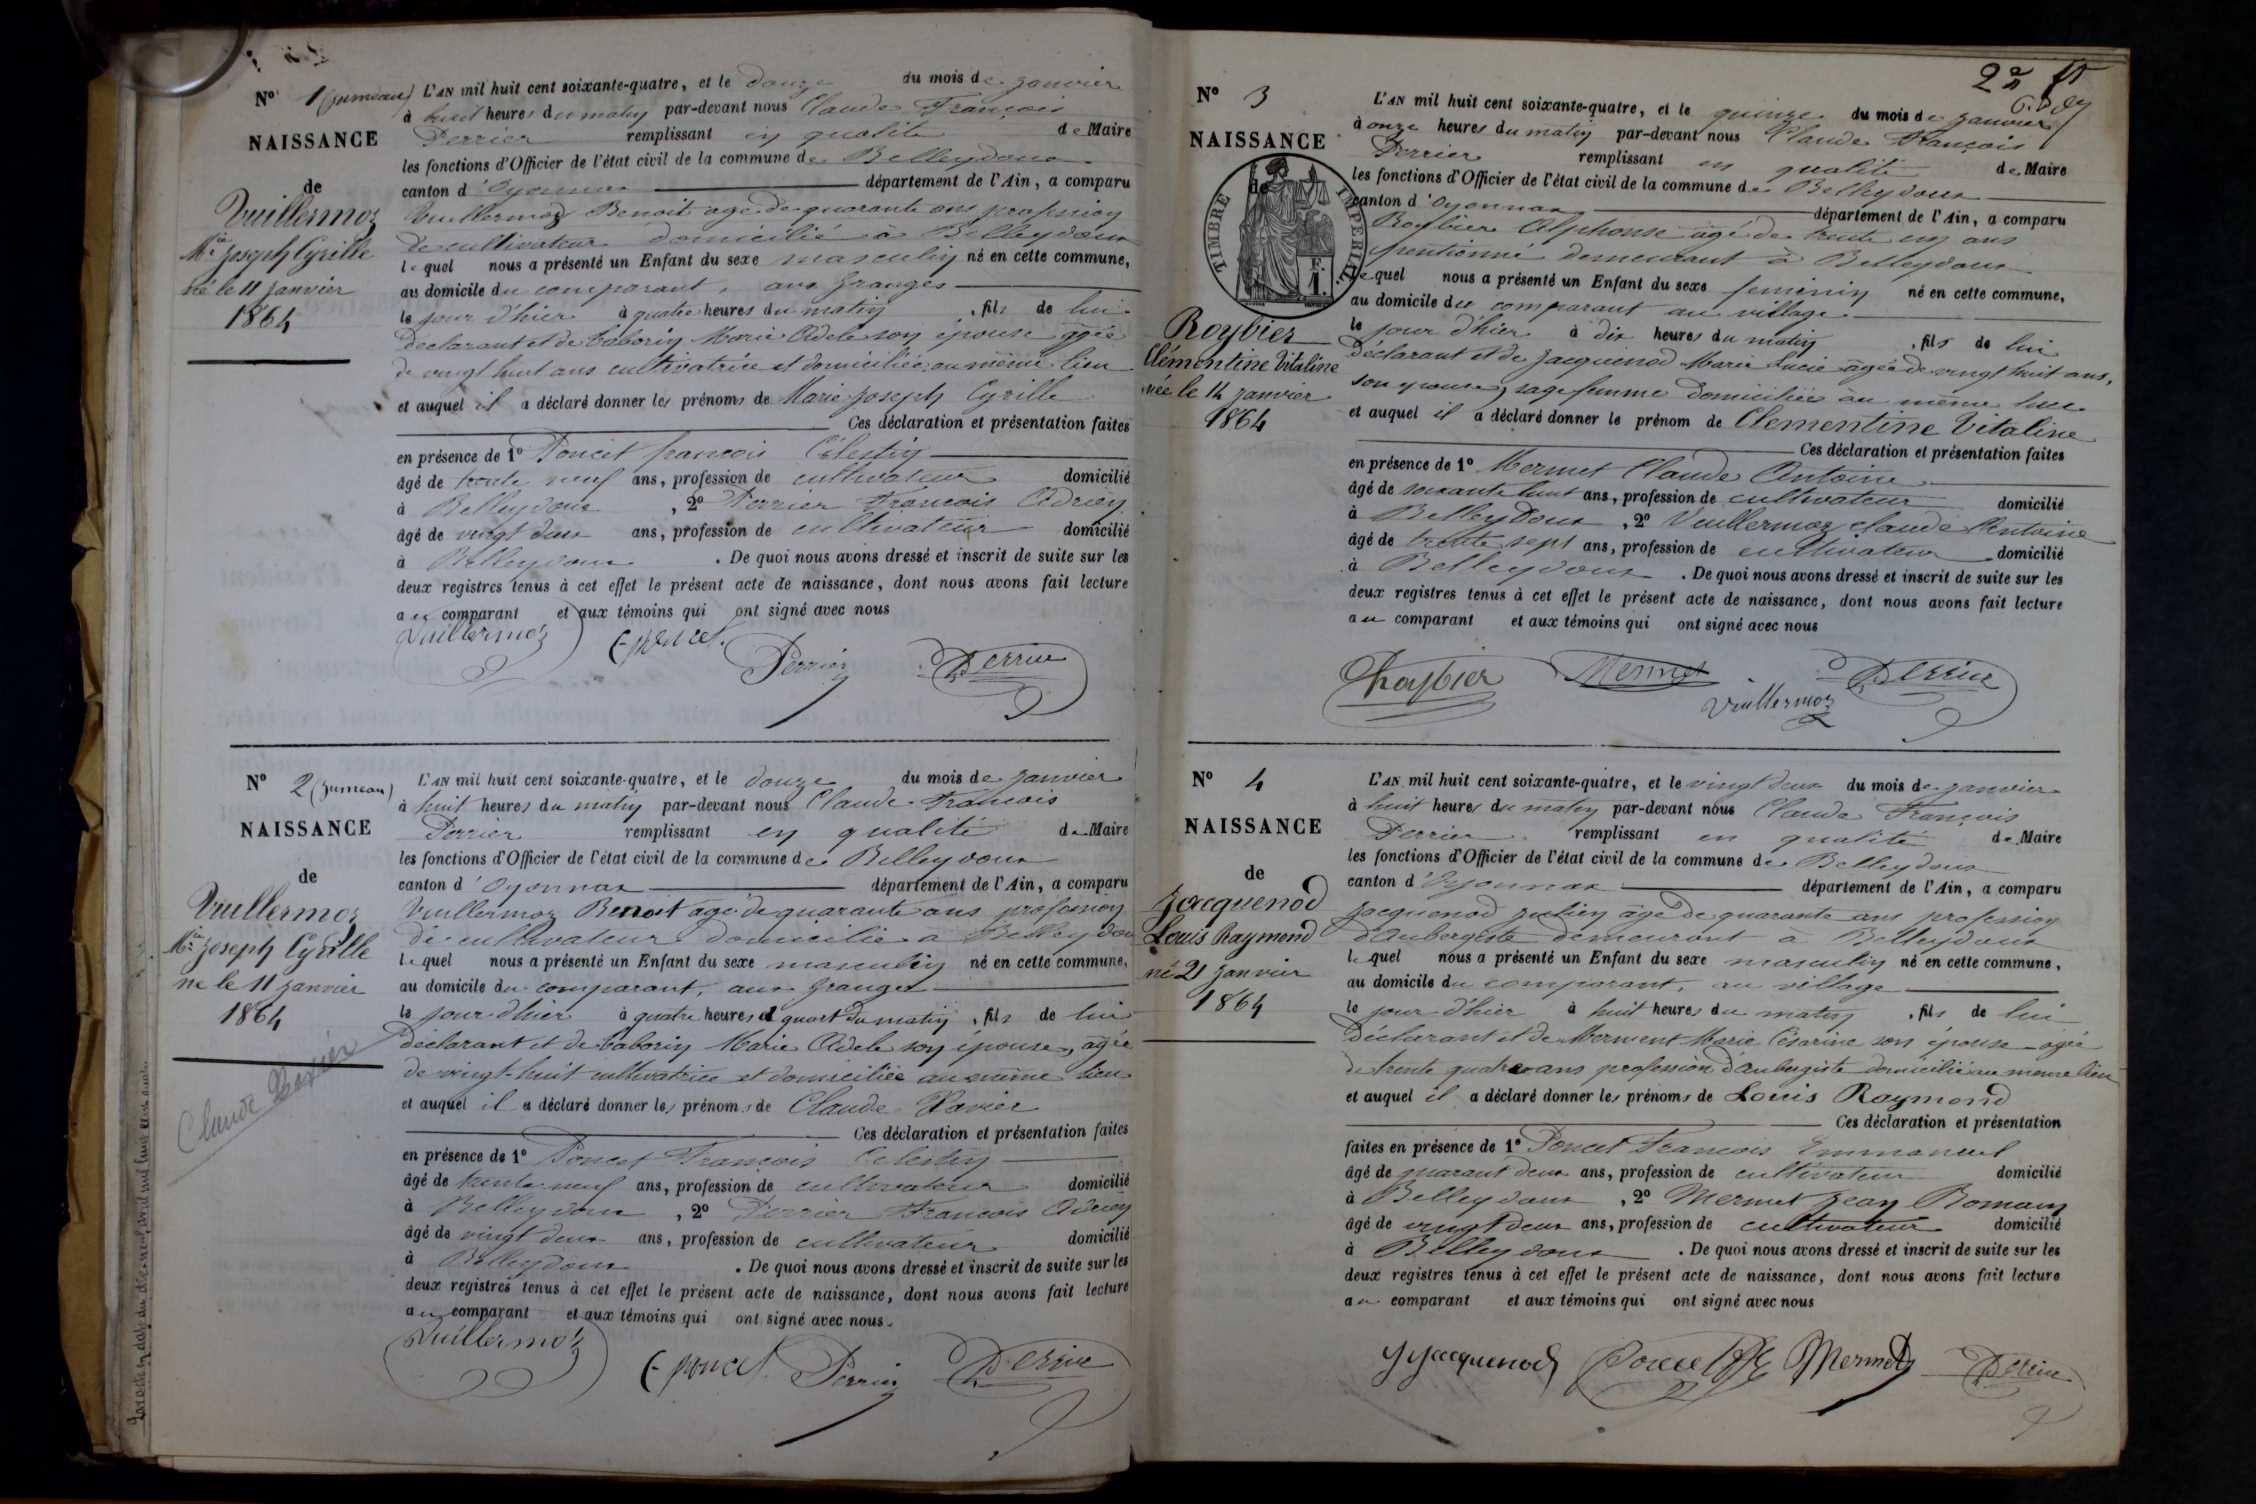 N° 1 (jumeau)
NAISSANCE
de
Vuillermoz
Mie Joseph Cyrille
né le 11 janvier
1864
L'AN mil huit cent soixante-quatre, et le douze du mois de janvier
à huit heures du matin par-devant nous Claude François
Perrier remplissant en qualité de Maire
les fonctions d'Officier de l'état civil de la commune de Belleydoux
canton d'Oyonnax département de l'Ain, a comparu
Vuillermoz Benoit agé de quarante ans profession
de cultivateur domicilié à Belleydoux
lequel nous a présenté un Enfant du sexe masculin né en cette commune,
au domicile du comparant, aux granges
le jour d'hier à quatre heures du matin, fils de lui
déclarant et de Marie Adele son épouse agée
de vingt huit ans cultivatrice et domiciliée au même lieu
et auquel il a déclaré donner les prénoms de Marie Joseph Cyrille
Ces déclaration et présentation faites
en présence de 1° Poncet françois Célestin
âgé de trente neuf ans, profession de cultivateur domicilié
à Belleydoux, 2° Perrier François Adrien
âgé de vingt deux ans, profession de cultivateur domicilié
à Belleydoux. De quoi nous avons dressé et inscrit de suite sur les
deux registres tenus à cet effet le présent acte de naissance, dont nous avons fait lecture
au comparant et aux témoins qui ont signé avec nous
Vuillermoz Poncet Perrier Perrier
N° 2 (jumeau)
NAISSANCE
de
Vuillermoz
Mie Joseph Cyrille
né le 11 janvier
1864
Claude Xavier
L'AN mil huit cent soixante-quatre, et le douze du mois de janvier
à huit heures du matin par-devant nous Claude François
Perrier remplissant en qualité de Maire
les fonctions d'Officier de l'état civil de la commune de Belleydoux
canton d'Oyonnax département de l'Ain, a comparu
Vuillermoz Benoit agé de quarante ans profession
de cultivateur domicilié à Belleydoux
lequel nous a présenté un Enfant du sexe masculin né en cette commune,
au domicile du comparant, aux granges
le jour d'hier à quatre heures et quart du matin, fils de lui
déclarant et de Marie Adele son épouse, agée
de vingt-huit cultivatrice et domiciliée au même lieu
et auquel il a déclaré donner les prénoms de Claude Xavier
Ces déclaration et présentation faites
en présence de 1° Poncet François Célestin
âgé de trente neuf ans, profession de cultivateur domicilié
à Belleydoux, 2° Perrier François Adrien
âgé de vingt deux ans, profession de cultivateur domicilié
à Belleydoux. De quoi nous avons dressé et inscrit de suite sur les
deux registres tenus à cet effet le présent acte de naissance, dont nous avons fait lecture
au comparant et aux témoins qui ont signé avec nous.
Vuillermoz Poncet Perrier Perrier
N° 3
NAISSANCE
de
TIMBRE IMPERIAL
1 F.
Roybier
Clémentine Vitaline
née le 14 janvier
1864
L'AN mil huit cent soixante-quatre, et le quinze du mois de janvier
à onze heures du matin par-devant nous Claude François
Perrier remplissant en qualité de Maire
les fonctions d'Officier de l'état civil de la commune de Belleydoux
canton d'Oyonnax département de l'Ain, a comparu
Roybier Alphonse âgé de trente un ans
pentionné demeurant à Belleydoux
lequel nous a présenté un Enfant du sexe feminin né en cette commune,
au domicile du comparant au village
le jour d'hier à dix heures du matin, fils de lui
déclarant et de Jacquenod Marie Lucie âgée de vingt huit ans,
son épouse, sage femme domiciliée au même lieu
et auquel il a déclaré donner le prénom de Clementine Vitaline
Ces déclaration et présentation faites
en présence de 1° Mermet Claude Antoine
âgé de soixante huit ans, profession de cultivateur domicilié
à Belleydoux, 2° Vuillermoz Claude Antoine
âgé de trente sept ans, profession de cultivateur domicilié
à Belleydoux. De quoi nous avons dressé et inscrit de suite sur les
deux registres tenus à cet effet le présent acte de naissance, dont nous avons fait lecture
au comparant et aux témoins qui ont signé avec nous
Roybier Mermet Vuillermoz Perrier
N° 4
NAISSANCE
de
Jacquenod
Louis Raymond
né 21 janvier
1864
L'AN mil huit cent soixante-quatre, et le vingt deux du mois de janvier
à huit heures du matin par-devant nous Claude François
Perrier remplissant en qualité de Maire
les fonctions d'Officier de l'état civil de la commune de Belleydoux
canton d'Oyonnax département de l'Ain, a comparu
Jacquenod Julien âgé de quarante ans profession
d'aubergiste demeurant à Belleydoux
lequel nous a présenté un Enfant du sexe masculin né en cette commune,
au domicile du comparant, au village
le jour d'hier à huit heures du matin, fils de lui
déclarant et de Mermet Marie Césarine son épouse agée
de trente quatre ans profession d'aubergiste domiciliée au meme lieu
et auquel il a déclaré donner les prénoms de Louis Raymond
Ces déclaration et présentation
faites en présence de 1° Poncet François Emmanuel
âgé de quarant deux ans, profession de cultivateur domicilié
à Belleydoux, 2° Mermet Jean Romain
âgé de vingt deux ans, profession de cultivateur domicilié
à Belleydoux. De quoi nous avons dressé et inscrit de suite sur les
deux registres tenus à cet effet le présent acte de naissance, dont nous avons fait lecture
au comparant et aux témoins qui ont signé avec nous
Jacquenod Poncet Mermet Perrier